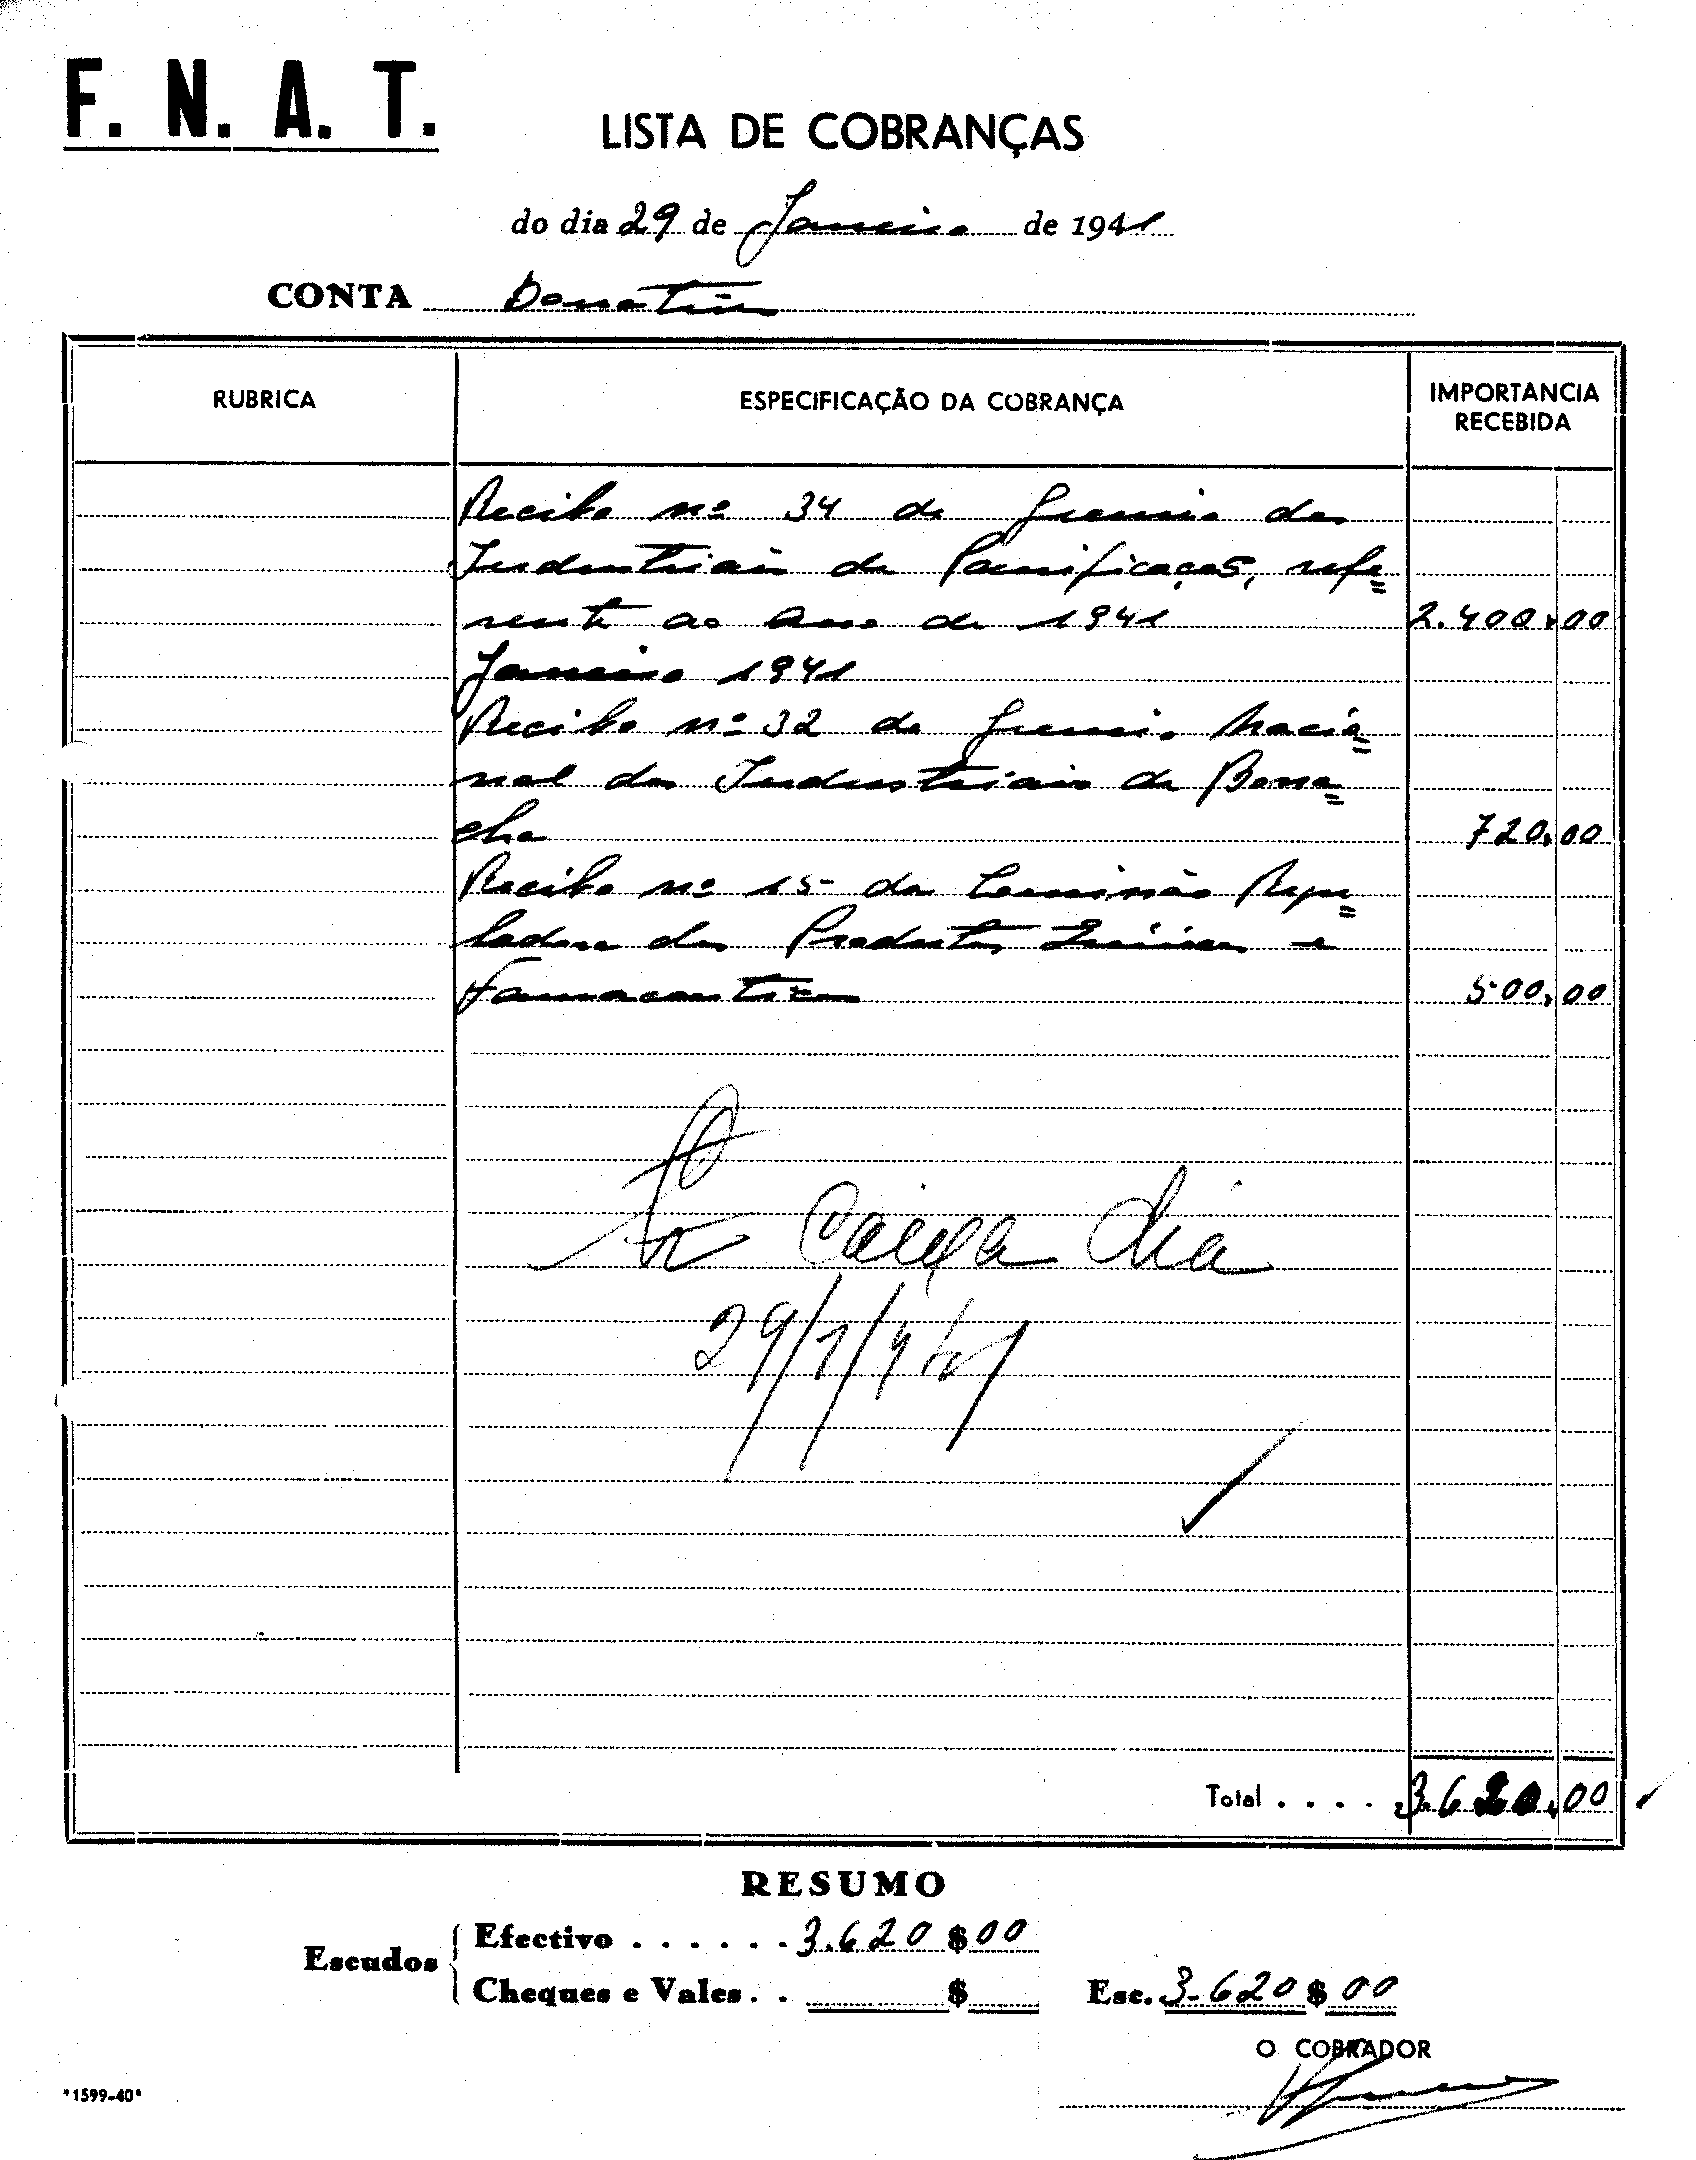 F. N. A. T.
LISTA DE COBRANÇAS
do dia 29 de Janeiro de 1941
CONTA Donativos
RUBRICA
ESPECIFICAÇÃO DA COBRANÇA
IMPORTANCIA
RECEBIDA
Recibo nº 34 do Gremio dos
Industriais de Panificação, refe=
rente ao ano de 1941 2.400,00
Janeiro 1941
Recibo nº 32 do Gremio Nacio=
nal dos Industriais de Bola=
cha 720,00
Recibo nº 15 da Comissão Regu=
ladora dos Productos Quimicos e
Farmaceuticos 500,00
Caixa dia
29/1/941
Total . . . . 3.620,00
RESUMO
Escudos
Efectivo . . . . . . 3.620 $ 00
Cheques e Vales. . $
Esc. 3.620 $ 00
O COBRADOR
"1599-40"